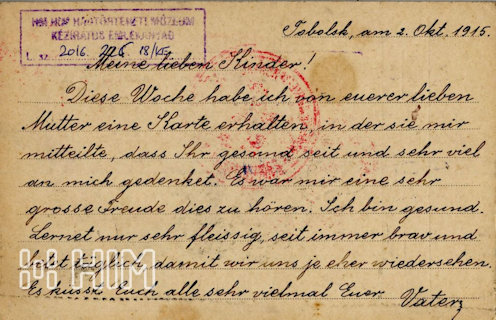 HM HIM HADTÖRTÉNETI MÚZEUM
KÉZIRATOS EMLÉKANYAG
2016. 18/KE
Tobolsk, am 2. Okt. 1915.
Meine lieben Kinder!
Diese Woche habe ich von euerer lieben
Mutter eine Karte erhalten, in der sie mir
mitteilte, dass Ihr gesund seit und sehr viel
an mich gedenket. Es war mir eine sehr
grosse Freude dies zu hören. Ich bin gesund.
Lernet nur sehr fleissig, seit immer brav und
täglich, damit wir uns je eher wiedersehen.
Es küsst Euch alle sehr vielmal Euer Vater
HIM